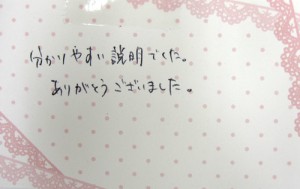 分かりやすい説明でした。
ありがとうございました。